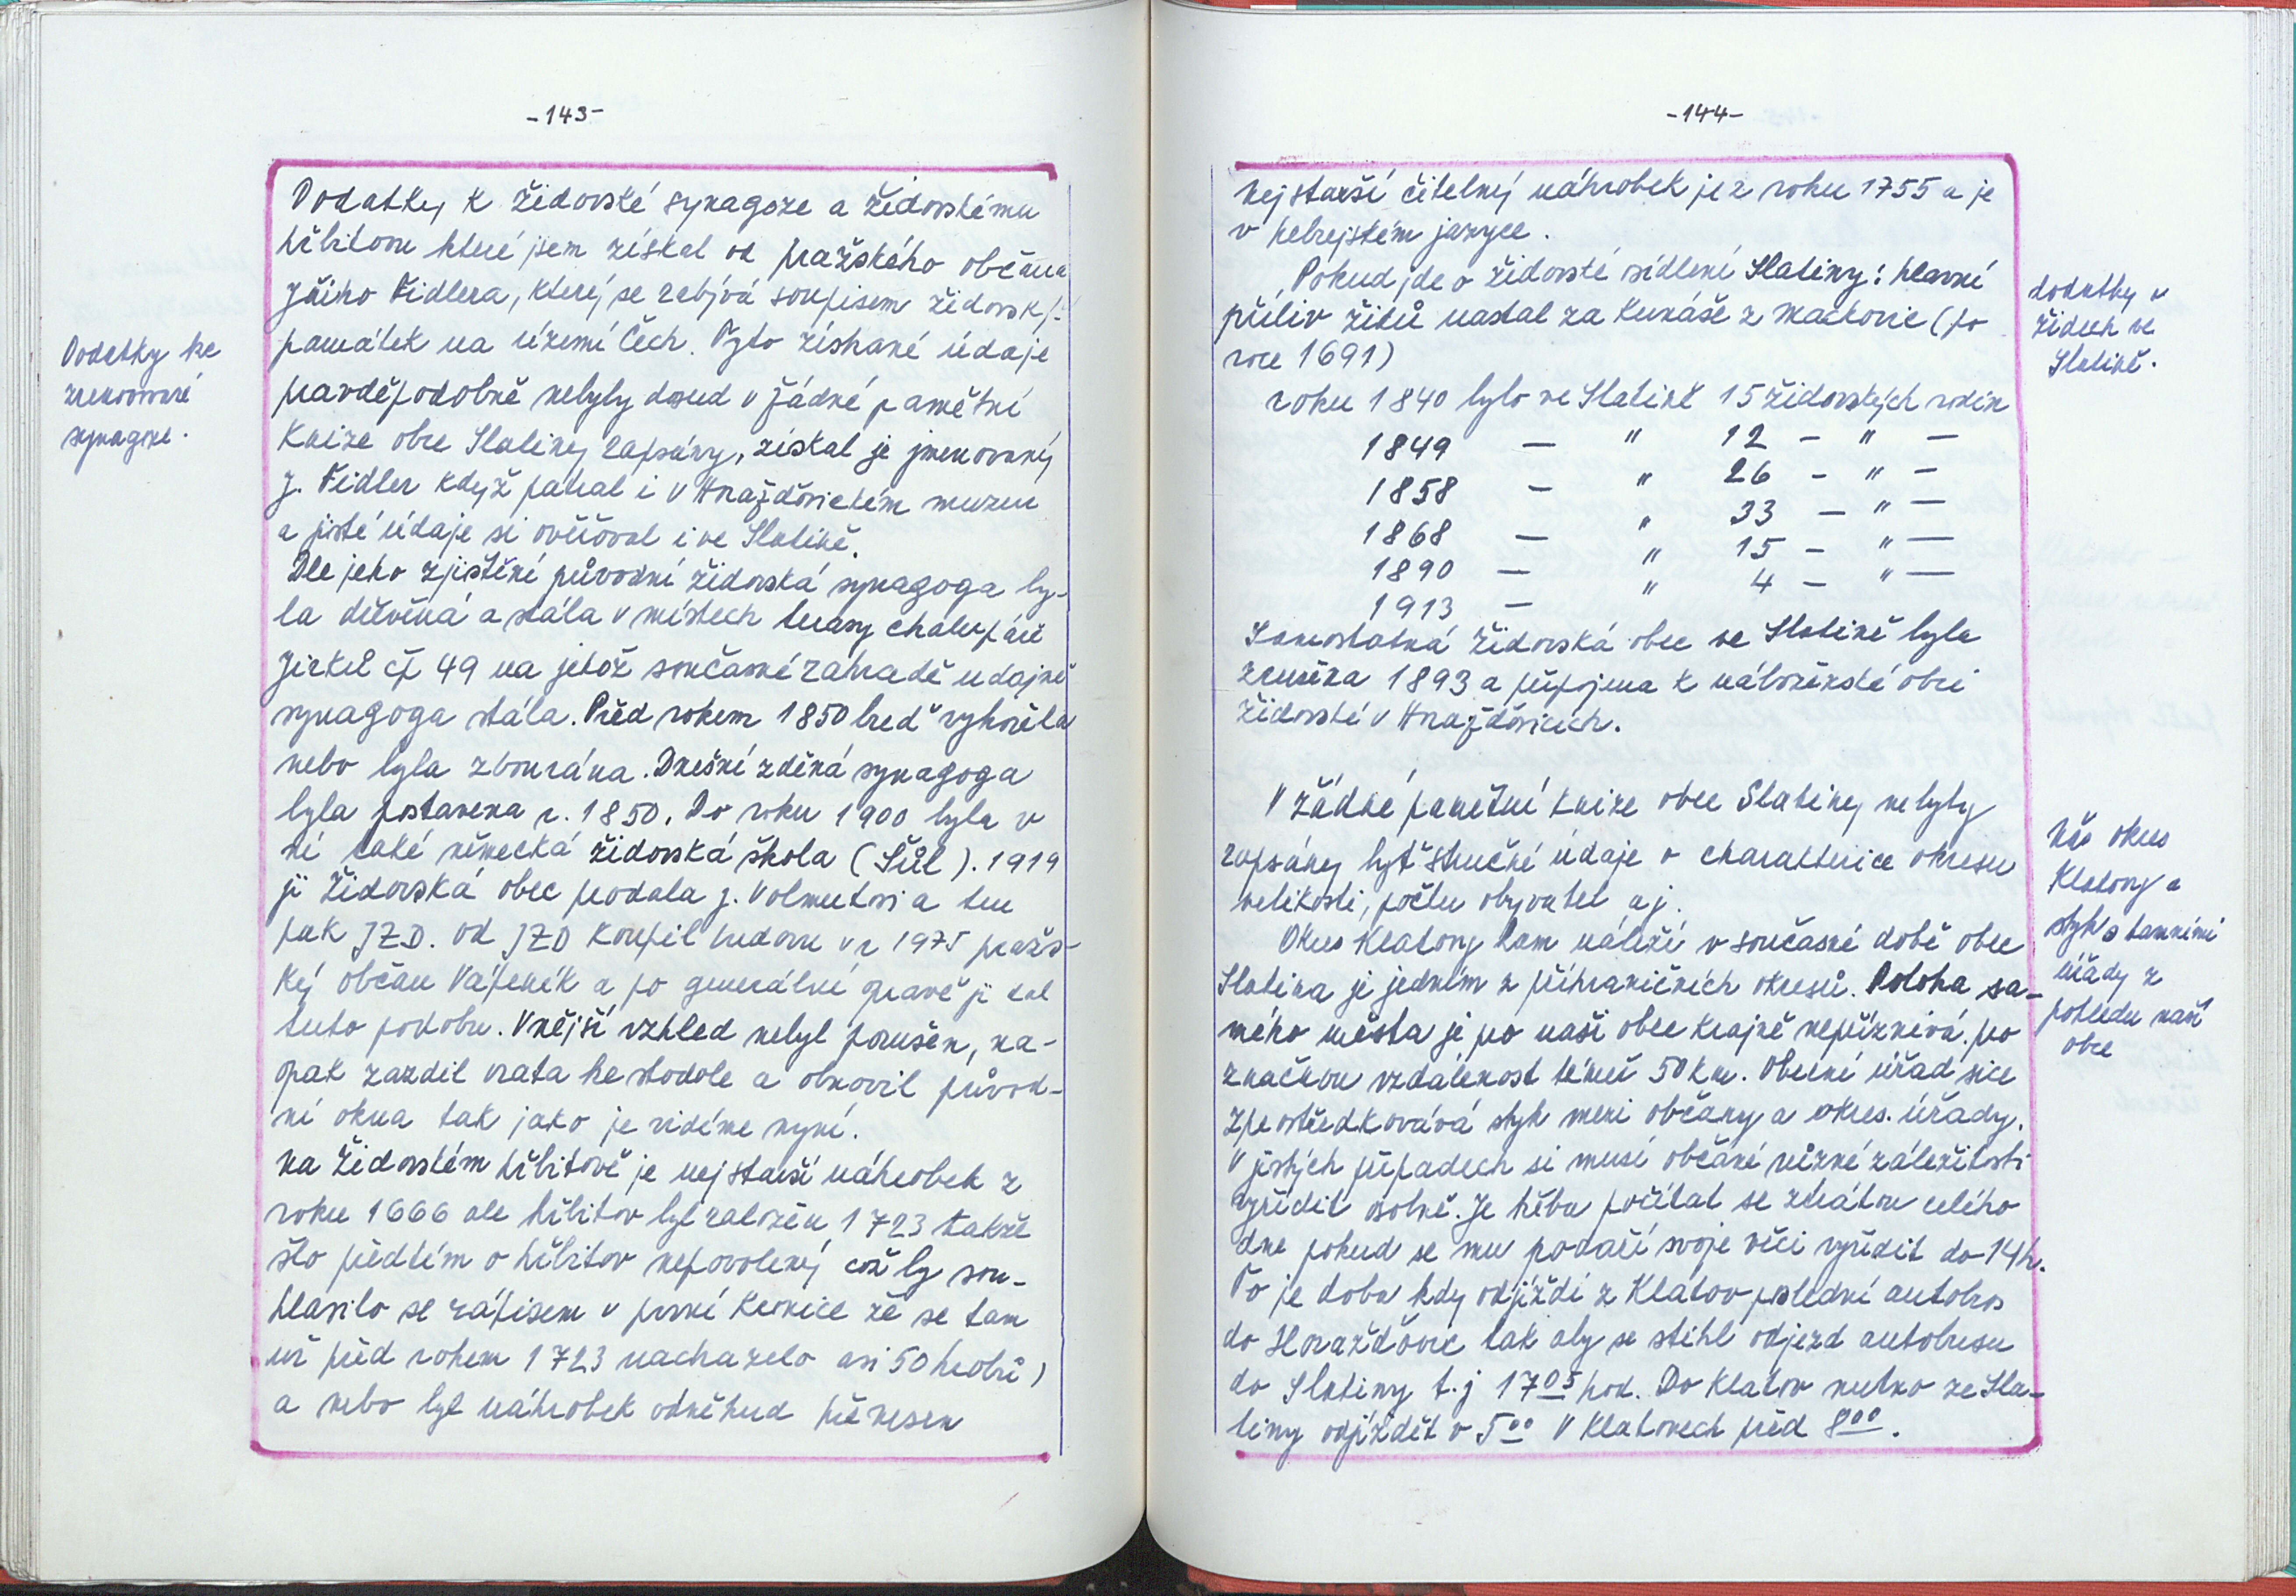 -143-
Dodatky ke
zrenovované
synagoze.
Dodatky k židovské synagoze a židovskému
hřbitovu které jsem získal od pražského občana
Jiřího Fidlera, který se zabývá soupisem židovsk/.
památek na území Čech. Tyto získané údaje
pravděpodobně nebyly dosud v žádné pamětní
knize obce Slatiny zapsány, získal je jmenovaný
J. Fidler když pátral i v Horažďovickém muzeu
a jisté údaje si ověřoval i ve Slatině.
Dle jeho zjištění původní židovská synagoga by-
la dřevěná a stála v místech terasy chalupáře
Jirků čp 49 na jehož současné zahradě udajně
synagoga stála. Před rokem 1850 buď vyhořela
nebo byla zbourána. Dnešní zděná synagoga
byla postavena r. 1850. Do roku 1900 byla v
ní také německá židovská škola (Šůl). 1919
ji židovská obec prodala J. Volmutovi a ten
pak JZD. od JZD koupil budovu v r 1975 pražs-
ký občan Vápeník a po generální opravě jí dal
tuto podobu. Vnější vzhled nebyl porušen, na-
opak zazdil vrata ke stodole a obnovil původ-
ní okna tak jako je vidíme nyní.
Na židovském hřbitově je nejstarší náhrobek z
roku 1666 ale hřbitov byl založen 1723 takže
šlo předtím o hřbitov nepovolený což by sou-
hlasilo se zápisem v první kronice že se tam
už před rokem 1723 nacházelo asi 50 hrobů)
a nebo byl náhrobek odněkud přenesen
-144-
Nejstarší čitelný náhrobek je z roku 1755 a je
v hebrejském jazyce.
Pokud jde o židovské sídlení Slatiny: hlavní
příliv židů nastal za Kunáše z Machovic (po
roce 1691)
roku 1840 bylo ve Slatině 15 židovských rodin
1849 — " 12 — " —
1858 — " 26 — " —
1868 — " 33 — " —
1890 — " 15 — " —
1913 — " 4 — " —
Samostatná židovská obec ve Slatině byla
zrušena 1893 a připojena k náboženské obci
židovské v Horažďovicích.
dodatky o
židech ve
Slatině.
V žádné pamětní knize obce Slatiny nebyly
zapsány byť stručné údaje o charakterice okresu
velikosti, počtu obyvatel aj.
Okres Klatovy kam náleží v současné době obec
Slatina je jedním z příhraničních okresů. Poloha sa-
mého města je pro naši obec krajně nepříznivá. pro
značnou vzdálenost téměř 50 km. Obecní úřad sice
zprostředkovává styk mezi občany a okres. úřady.
V jistých případech si musí občané různé záležitosti
vyřídit osobně. Je třeba počítat se ztrátou celého
dne pokud se mu podaří svoje věci vyřídit do 14h.
To je doba kdy odjíždí z Klatov poslední autobus
do Horažďovic tak aby se stihl odjezd autobusu
do Slatiny t.j 17⁰⁵ hod. Do Klatov nutno ze Sla-
tiny odjíždět v 5⁰⁰ V Klatovech před 8⁰⁰.
Náš okres
Klatovy a
styk s tamními
úřady z
pohledu naší
obce